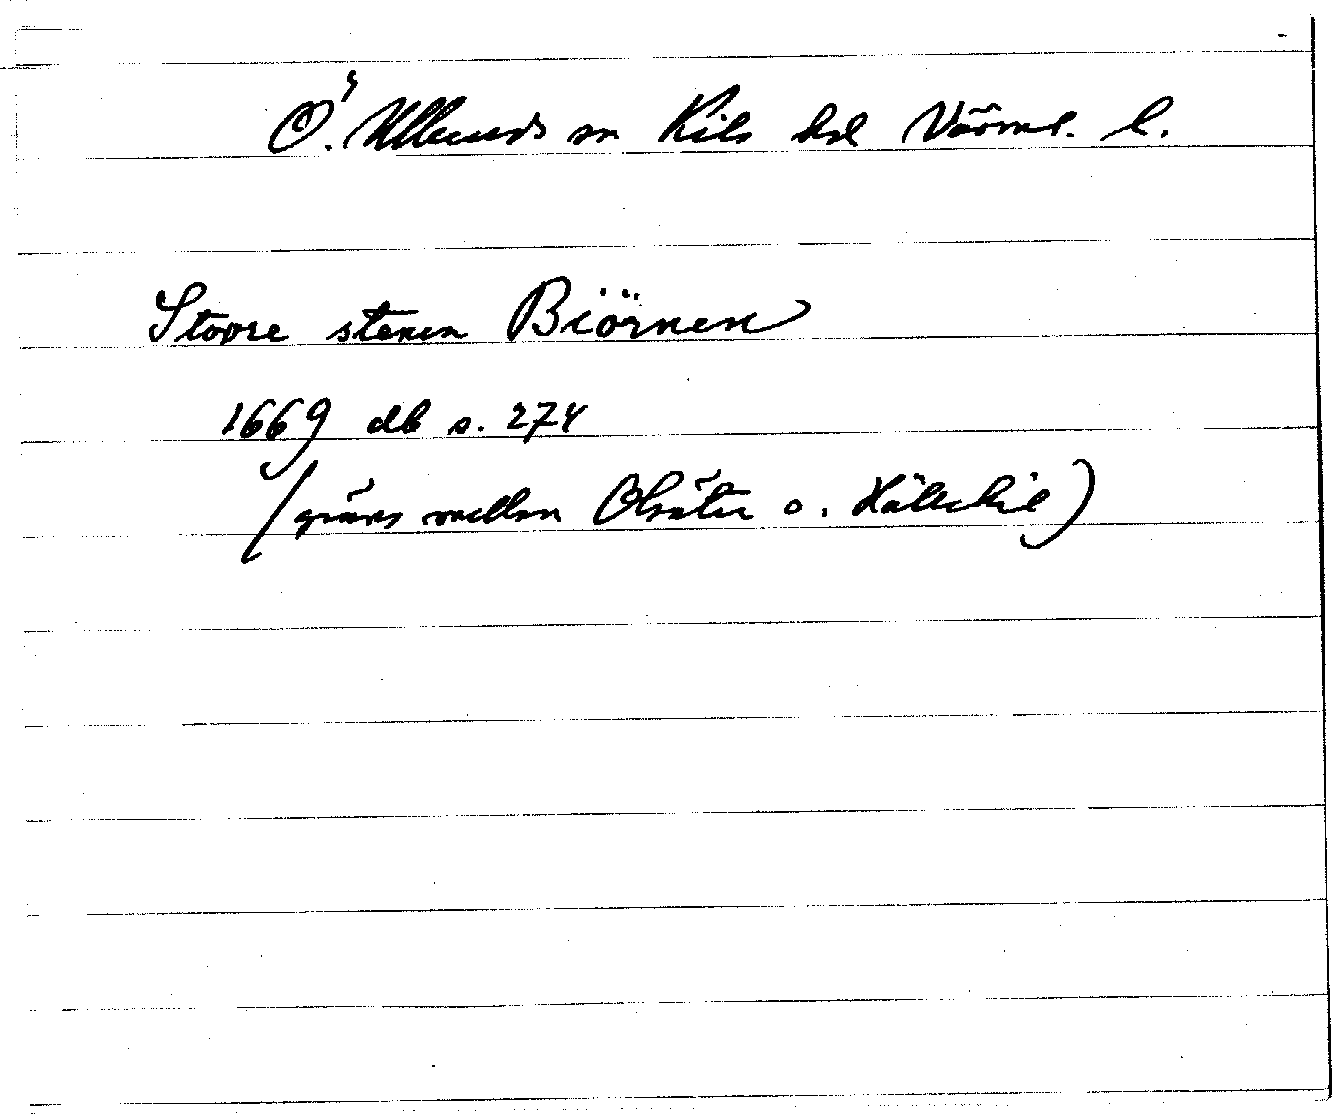 Ö. Ulleruds sn Kils hd Värml. l.
Stoore stenen Biörnen
1669 db s. 274
(gräns mellan Olsäter o. Hällekil)